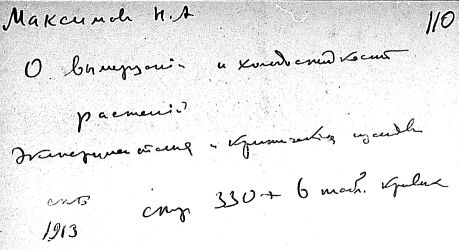 Максимов Н.А 110
О вымерзании и холодостойкости
растений
Экспериментальные и критические
спб стр 330 + 6 табл. кривых
1913